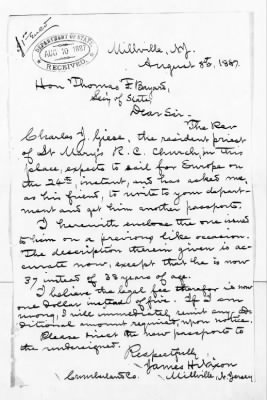 1st Encl
DEPARTMENT OF STATE
AUG 10 1887
RECEIVED.
Millville, N.J.
August 8th, 1887.
Hon. Thomas F. Bayard,
Sec'y of State,
Dear Sir.
The Rev
Charles J. Giese, the resident priest
of St Mary's R. C. Church, in this
place, expects to sail for Europe on
the 26th, instant, and has asked me,
as his friend, to write to your depart-
ment and get him another passport.
I herewith enclose the one issued
to him on a previous like occasion.
The description therein given is ac-
curate now, except that he is now
37 instead of 33 years of age.
I believe the legal fee therefor is now
one dollar instead of five. If I am
wrong, I will immediately remit any ad-
ditional amount required, upon notice.
Please direct the new passport to
the undersigned.
Respectfully,
James H. Nixon
Cumberland Co. Millville, N. Jersey